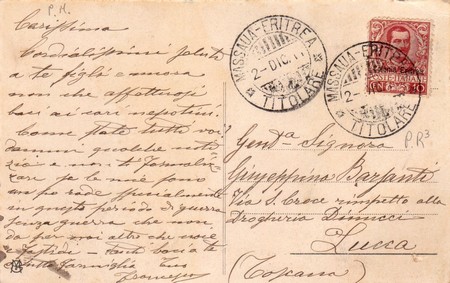 P.R.
Carissima
Cordialissimi saluti
a te figli e suocera
non che affettuosi
baci ai cari nepotini.
Come state tutti voi?
dammi qualche noti
zia e non ti formaliz
zare se le mie sono
un po rade specialmente
in questo periodo di guerra
senza guerra che non
da per noi altro che noie
e fastidi - Tanti baci a te
e tutta famiglia tuo
MASSAUA-ERITREA
2-DIC.11
TITOLARE
MASSAUA-ERITREA
2-
TITOLARE
POSTE ITALIANE
CENT. 10
P.R³
Gent.ma Signora
Giuseppina Barsanti
Via S. Croce rimpetto alla
Drogheria Dinucci
Lucca
(Toscana)